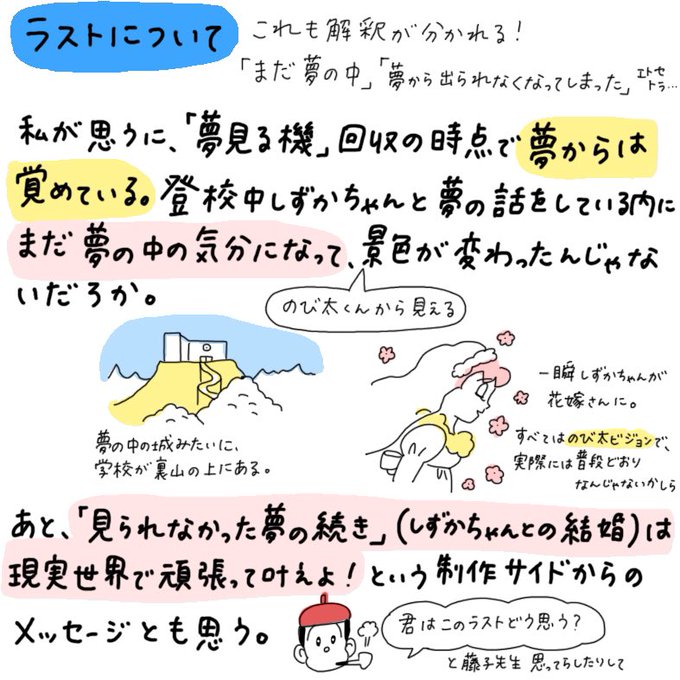 ラストについて
これも解釈が分かれる!
「まだ夢の中」「夢から出られなくなってしまった」エトセトラ…
私が思うに、「夢見る機」回収の時点で夢からは
覚めている。登校中しずかちゃんと夢の話をしている内に
まだ夢の中の気分になって、景色が変わったんじゃな
いだろか。
のび太くんから見える
夢の中の城みたいに、
学校が裏山の上にある。
一瞬しずかちゃんが
花嫁さんに。
すべてはのび太ビジョンで、
実際には普段どおり
なんじゃないかしら
あと、「見られなかった夢の続き」(しずかちゃんとの結婚)は
現実世界で頑張って叶えよ!という制作サイドからの
メッセージとも思う。
君はこのラストどう思う?
と藤子先生 思ってらしたりして